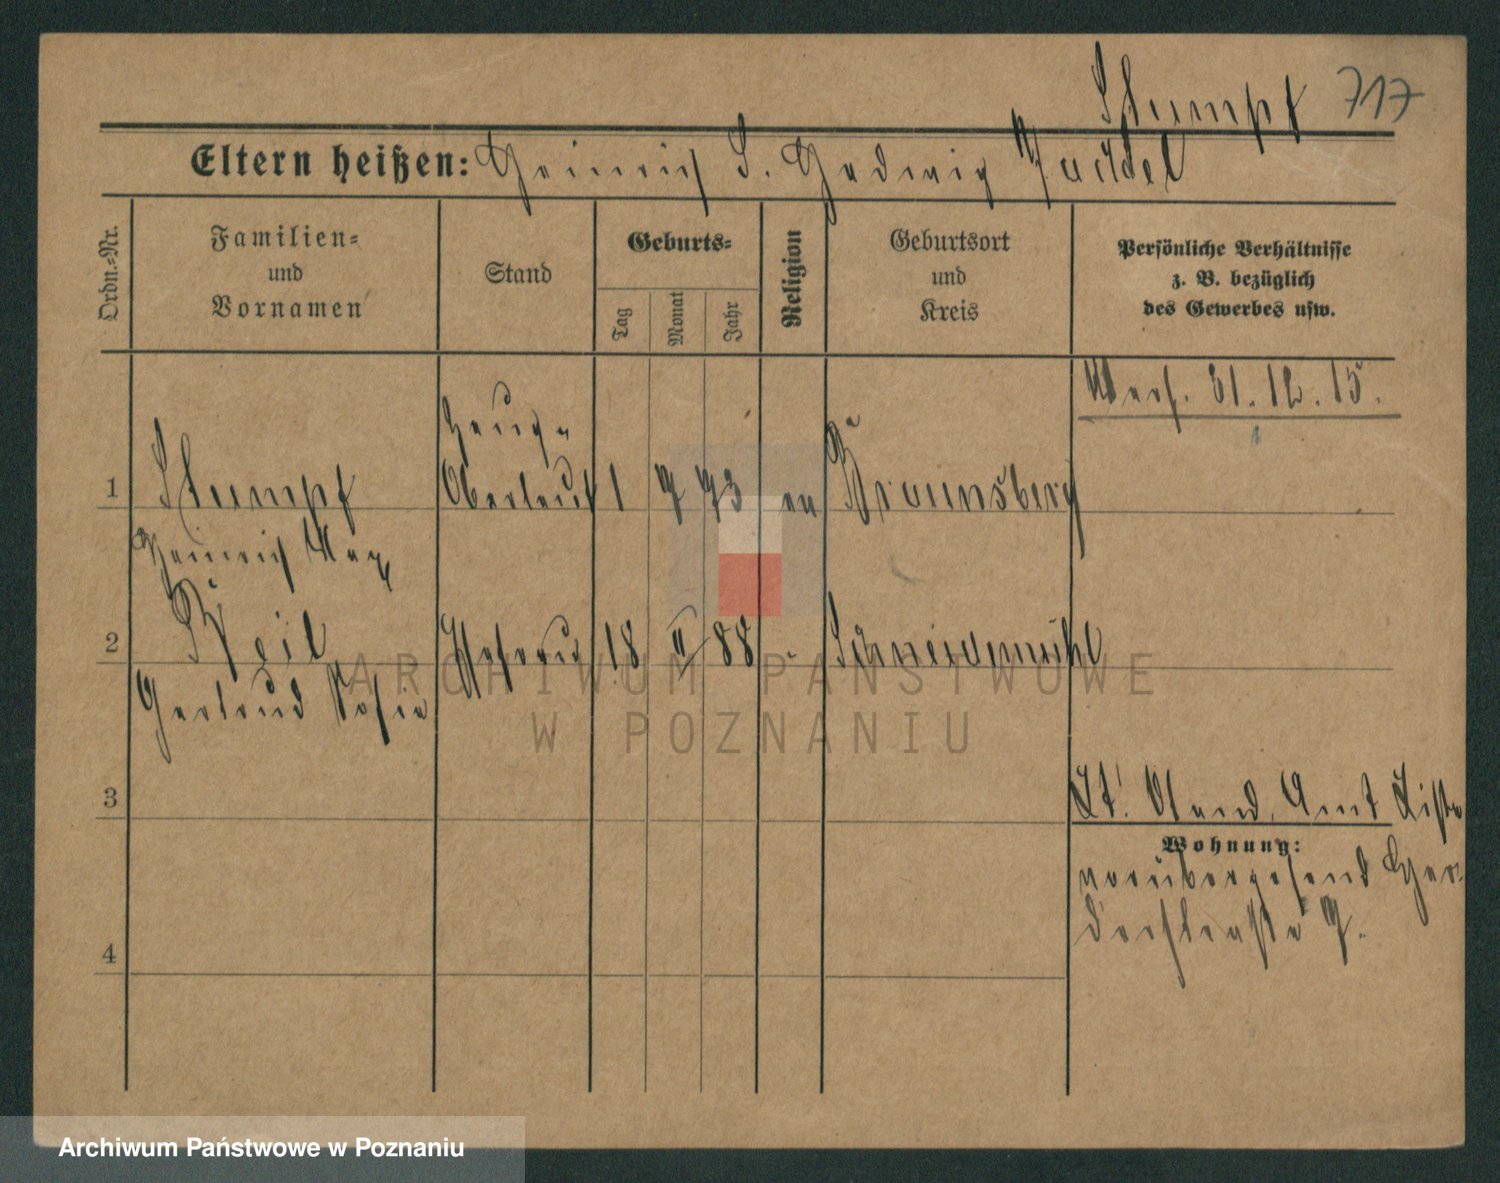 Stumpf 717
Eltern heißen: Heinrich S. Hedwig
Ordn.-Nr.
Familien-
und
Vornamen
Stand
Geburts-
Tag
Monat
Jahr
Religion
Geburtsort
und
Kreis
Persönliche Verhältnisse
z. B. bezüglich
des Gewerbes usw.
31.12.15.
Zeug-
1 Stumpf Oberleut 1 7 73 ev Braunsberg
Heinrich Max
2 Keil Ehefrau 18 II 88 Schneidemühl
Gertrud Sofie
3
Lt. Stand. Amt Liste
Wohnung:
vorübergehend Her-
derstraße 7.
4
ARCHIWUM PAŃSTWOWE
W POZNANIU
Archiwum Państwowe w Poznaniu